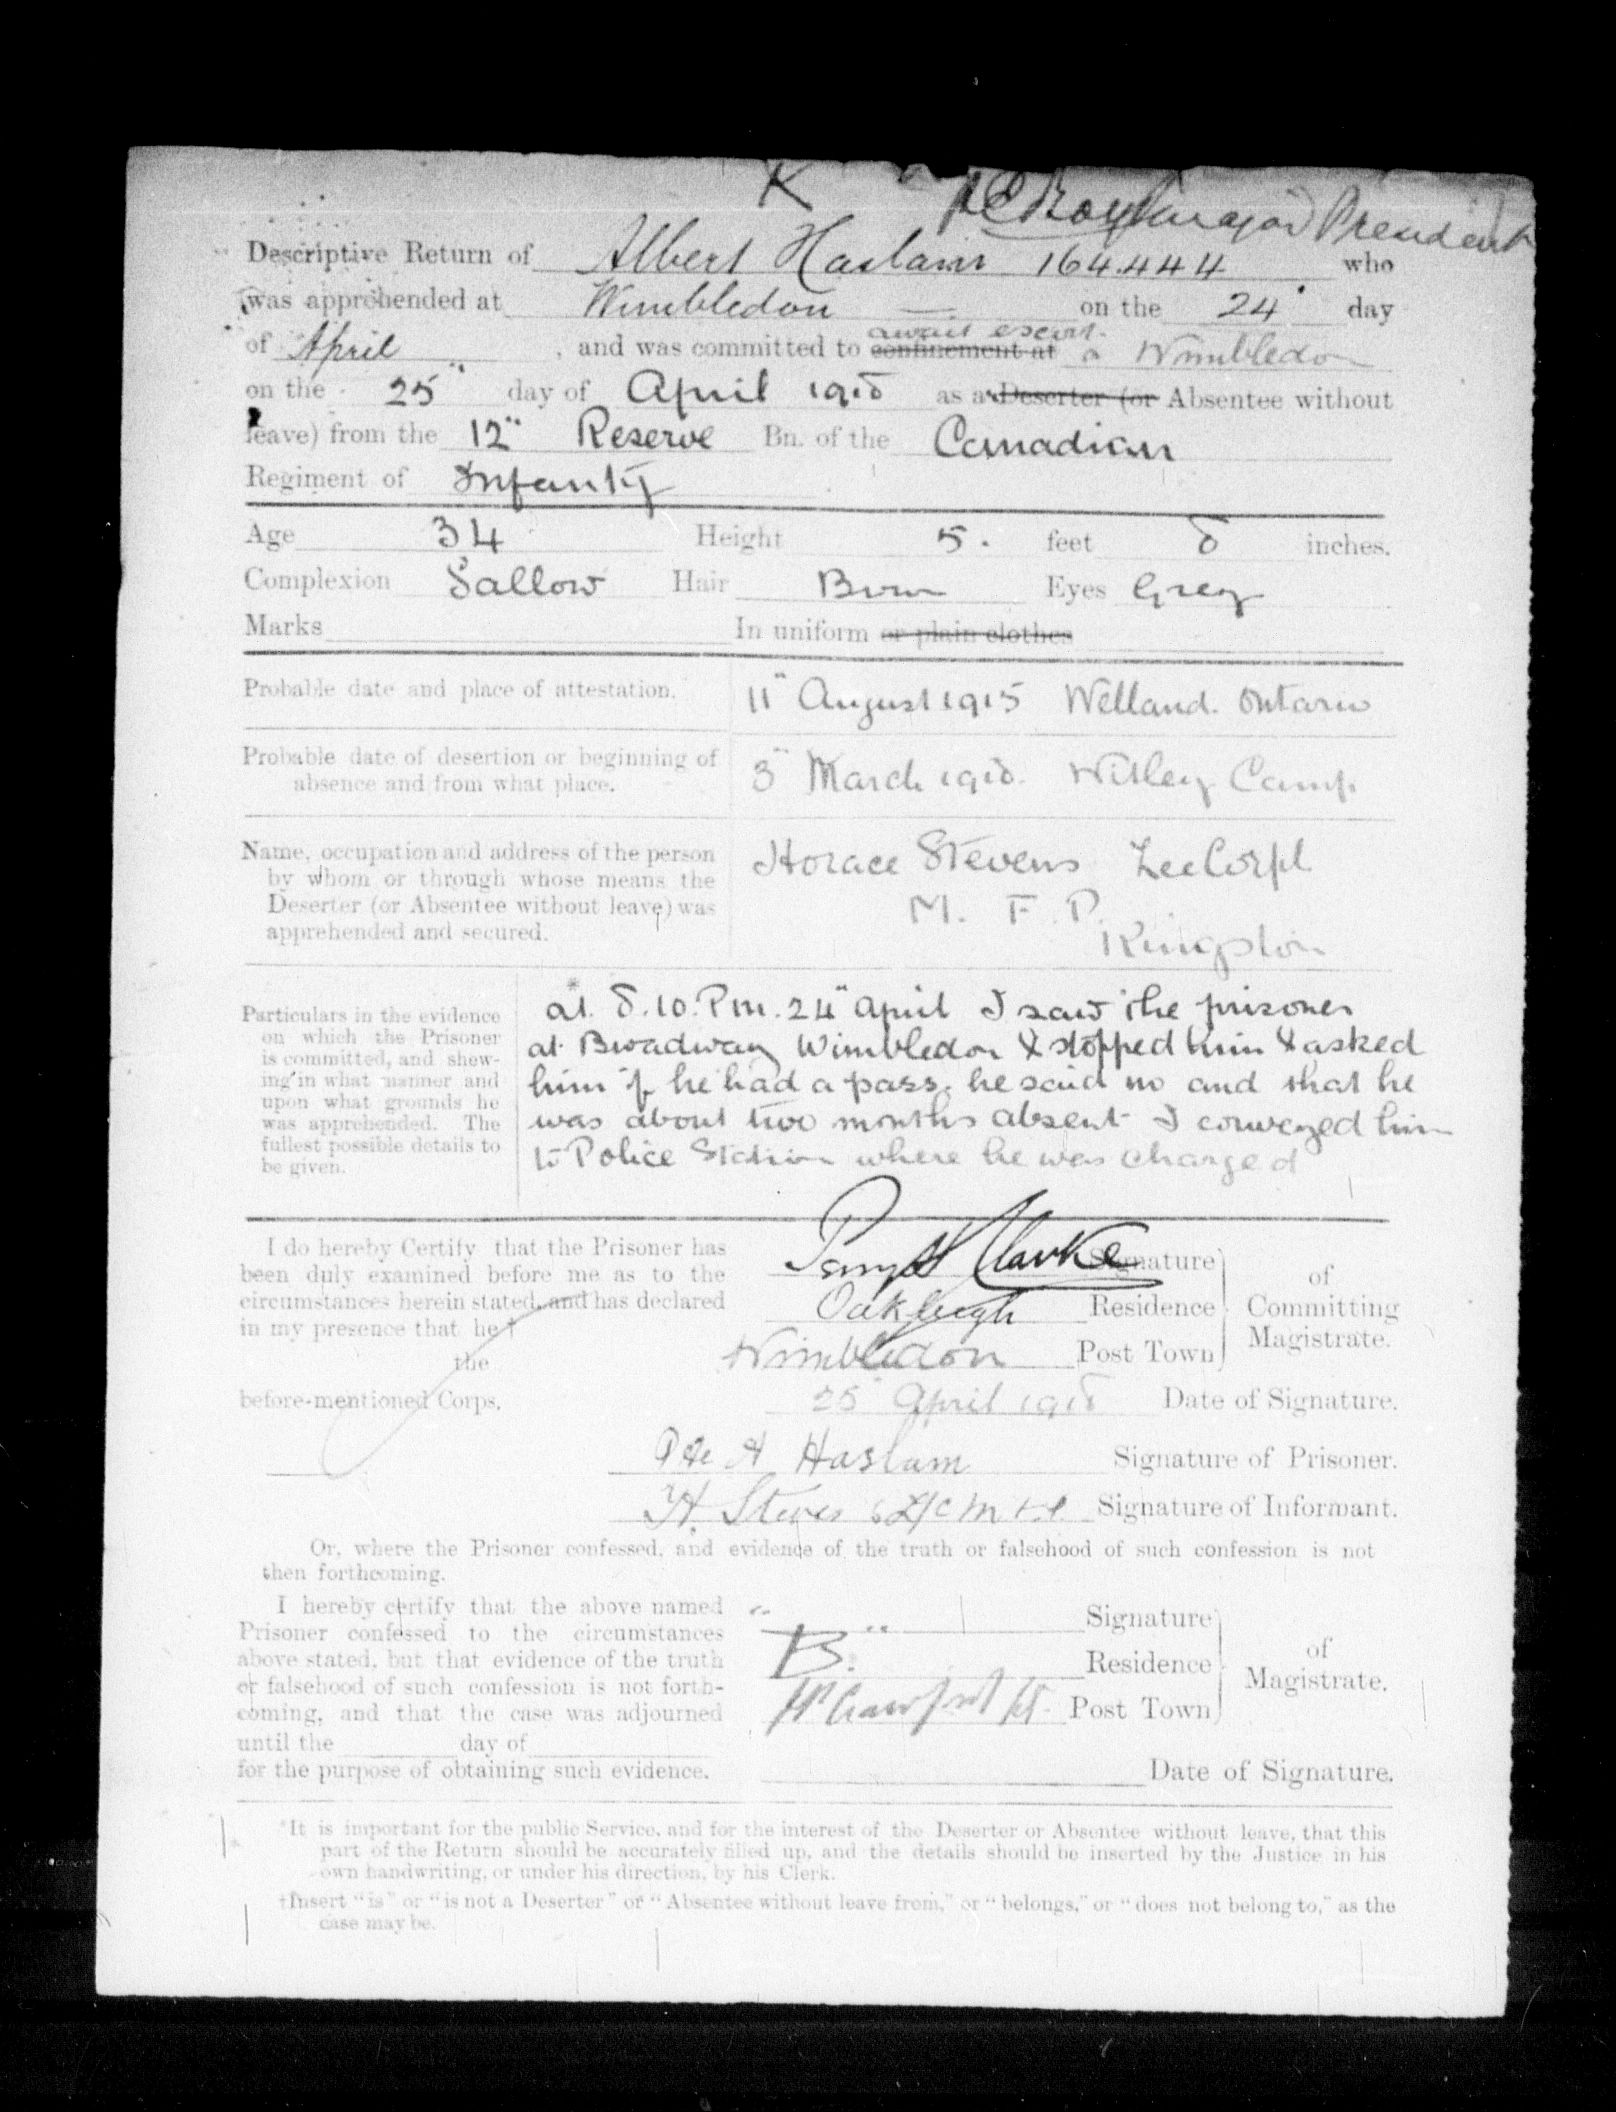 K
Major President
Descriptive Return of Albert Haslam 164444 who
was apprehended at Wimbledon on the 24" day
await escort
of April, and was committed to confinement at Wimbledon
on the 25" day of April 1918 as a Deserter (or Absentee without
leave) from the 12" Reserve Bn. of the Canadian
Regiment of Infantry
Age 34 Height 5. feet 8 inches.
Complexion Sallow Hair Brwn Eyes Grey
Marks In uniform or plain clothes
Probable date and place of attestation. 11" August 1915 Welland. Ontario
Probable date of desertion or beginning of
absence and from what place. 3" March 1918. Witley Camp
Name, occupation and address of the person
by whom or through whose means the
Deserter (or Absentee without leave) was
apprehended and secured.
Horace Stevens Lce Corpl
M. F. P.
Kingston
Particulars in the evidence
on which the Prisoner
is committed, and shew-
ing in what manner and
upon what grounds he
was apprehended. The
fullest possible details to
be given.
at. 8.10. Pm. 24" April I saw the prisoner
at Broadway Wimbledon & stopped him & asked
him if he had a pass. he said no and that he
was about two months absent I conveyed him
to Police Station where he was charged
I do hereby Certify that the Prisoner has
been duly examined before me as to the
circumstances herein stated, and has declared
in my presence that he †
the
before-mentioned Corps.
Clarke Signature
Oakleigh Residence
Wimbledon Post Town
of
Committing
Magistrate.
25" April 1918 Date of Signature.
Pte A Haslam Signature of Prisoner.
H. Stevens L/c M.F.P. Signature of Informant.
Or, where the Prisoner confessed, and evidence of the truth or falsehood of such confession is not
then forthcoming.
I hereby certify that the above named
Prisoner confessed to the circumstances
above stated, but that evidence of the truth
or falsehood of such confession is not forth-
coming, and that the case was adjourned
until the day of
for the purpose of obtaining such evidence.
"B" Signature
Residence
Post Town
of
Magistrate.
Date of Signature.
*It is important for the public Service, and for the interest of the Deserter or Absentee without leave, that this
part of the Return should be accurately filled up, and the details should be inserted by the Justice in his
own handwriting, or under his direction, by his Clerk.
†Insert "is" or "is not a Deserter" or "Absentee without leave from," or "belongs," or "does not belong to," as the
case may be.